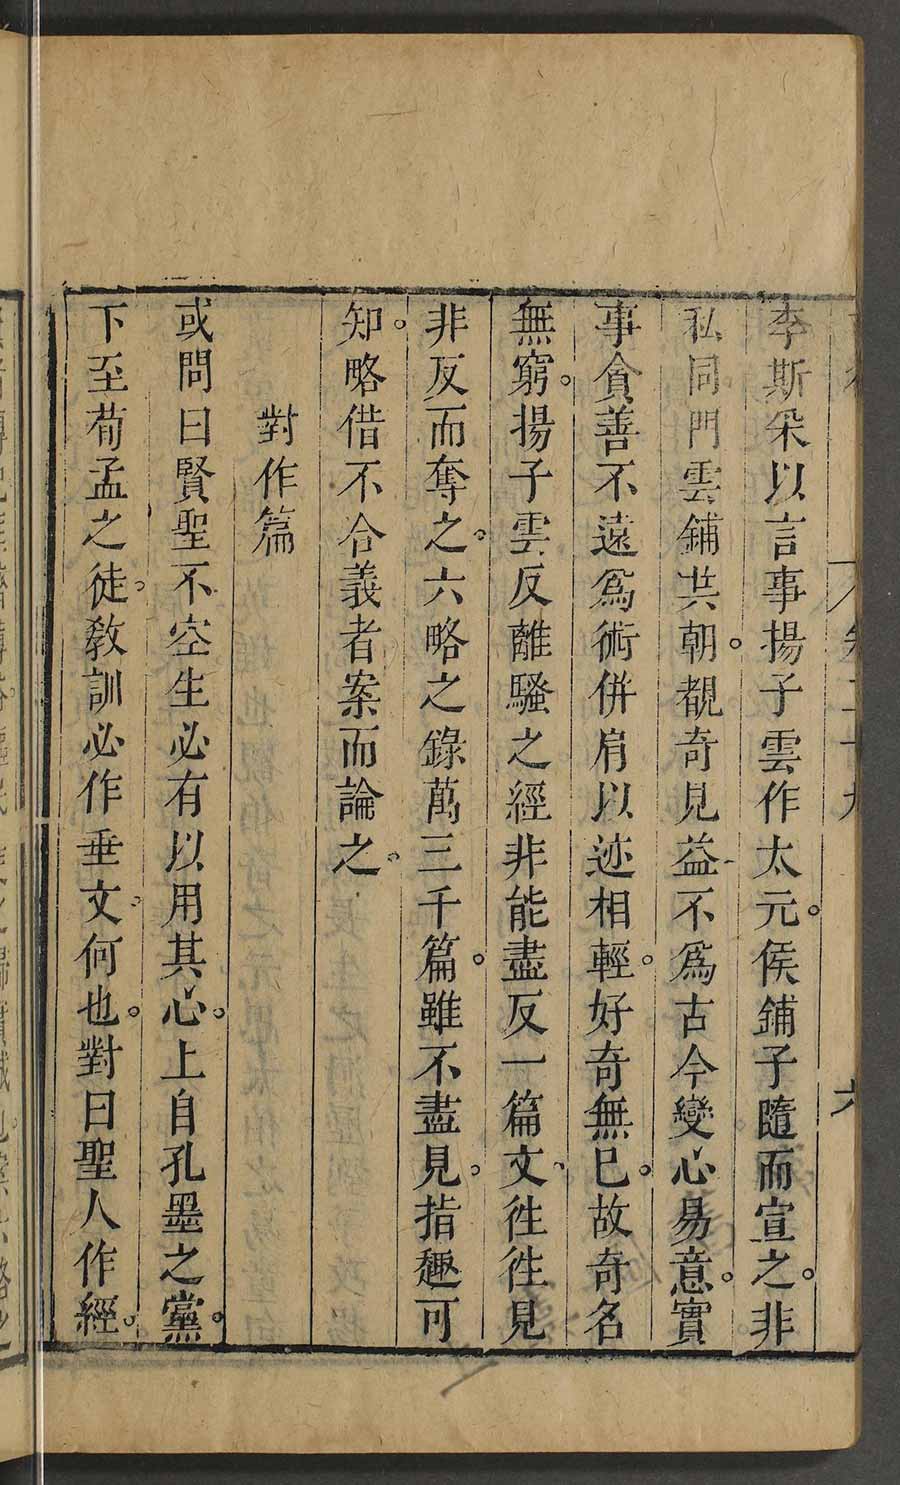 李斯采以言事揚子雲作太元。侯鋪子隨而宣之。非
私同門雲鋪共朝。覩奇見益不為古今變心易意。實
事貪善不遠為術併肩以迹相輕。好奇無已。故奇名
無窮。揚子雲反離騷之經非能盡反一篇文、往往見
非反而奪之。六略之錄萬三千篇。雖不盡見。指趣可
知。略借不合義者案而論之。
對作篇
或問曰賢聖不空生必有以用其心。上自孔墨之黨。
下至荀孟之徒。教訓必作垂文。何也。對曰聖人作經。